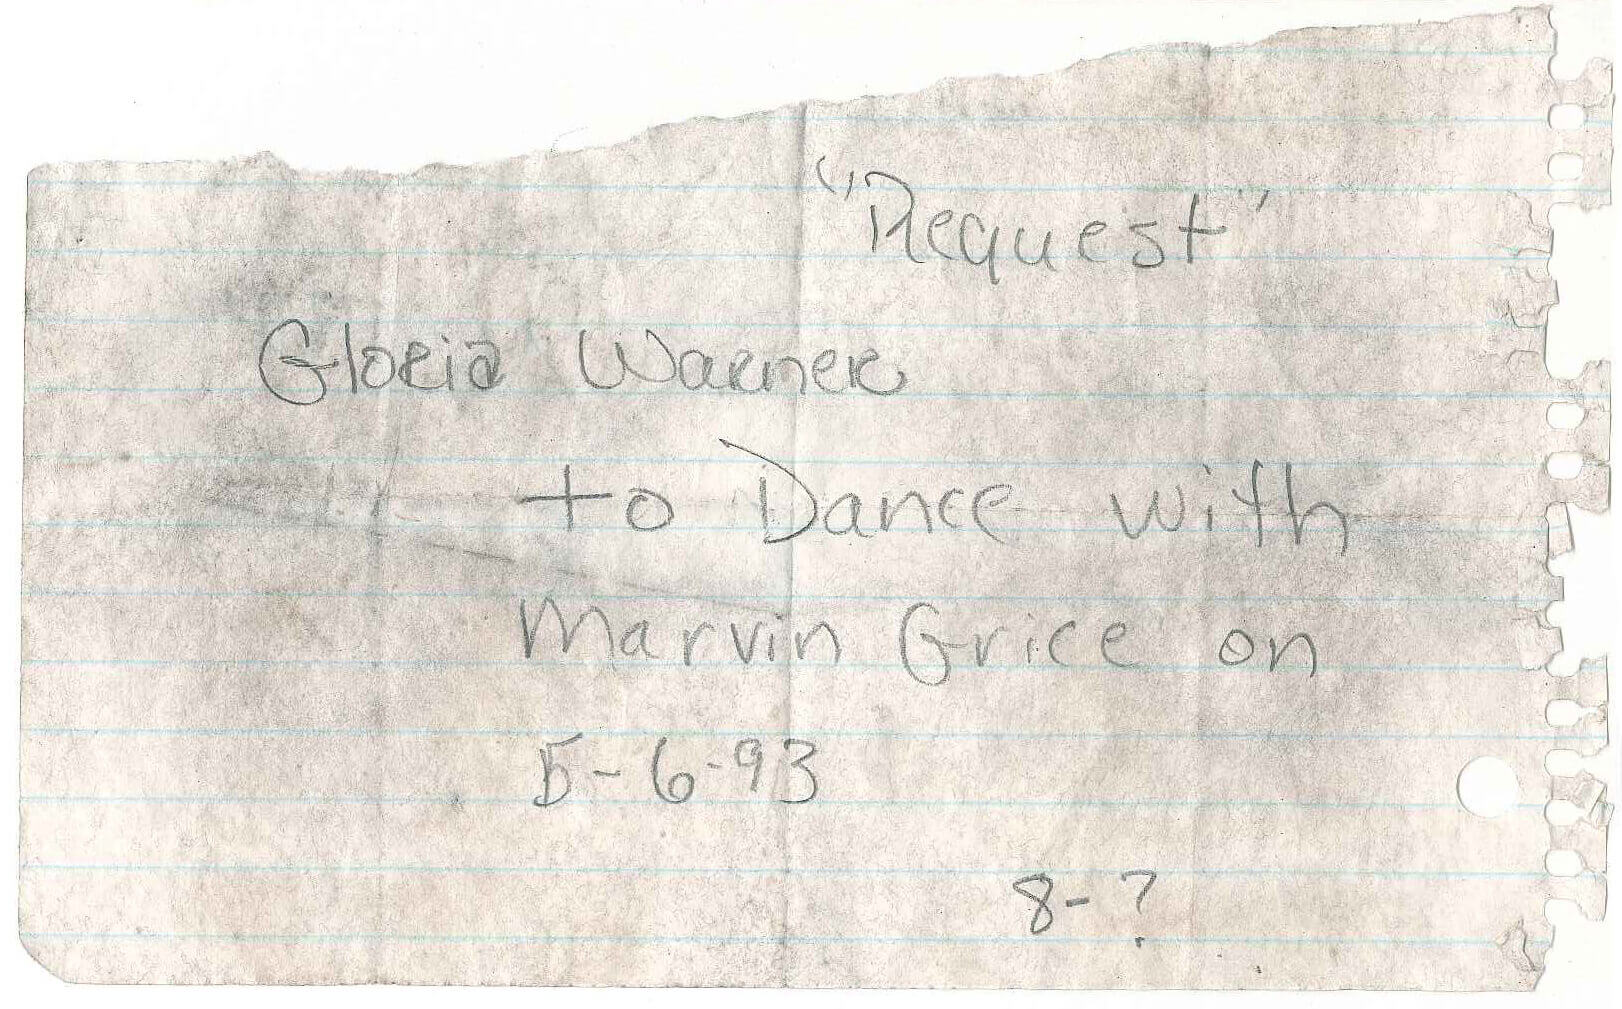 "Request"
Gloria Warner
to Dance with
Marvin Grice on
5-6-93
8-?